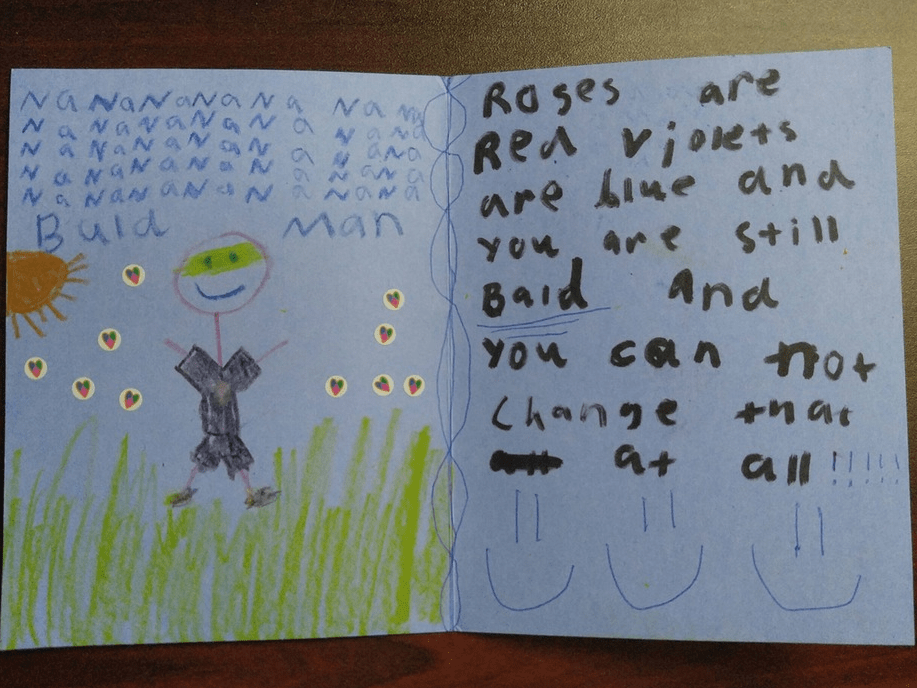 Na NaNaNaNa Na Na
Na NaNaNaNa NaNa
Na NaNaNa Na NaNa
Na NaNaNaNa NaNa
Na NaNaNaNa NaNa
Bald Man
Roses are
Red violets
are blue and
you are still
Bald and
you can not
change that
at all!!!!!